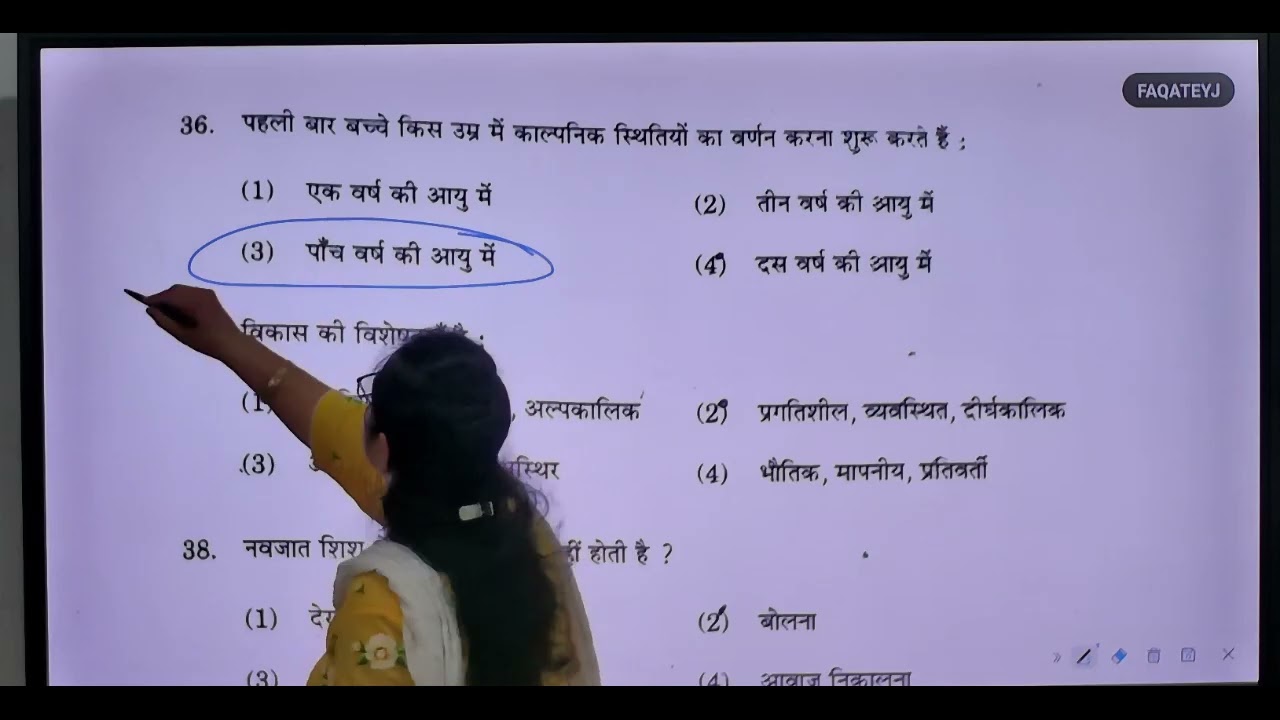 FAQATEYJ
36. पहली बार बच्चे किस उम्र में काल्पनिक स्थितियों का वर्णन करना शुरू करते हैं :
(1) एक वर्ष की आयु में (2) तीन वर्ष की आयु में
(3) पाँच वर्ष की आयु में (4) दस वर्ष की आयु में
विकास की
(1) , अल्पकालिक (2) प्रगतिशील, व्यवस्थित, दीर्घकालिक
(3) (4) भौतिक, मापनीय, प्रतिवर्ती
38. नवजात होती है ?
(1) (2) बोलना
(3) (4) आवाज निकालना